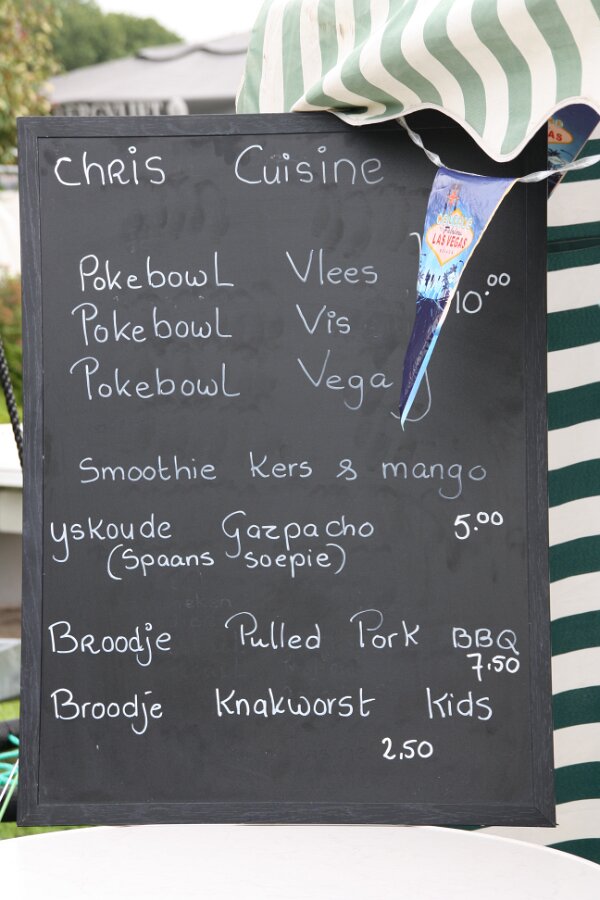 Chris Cuisine
Pokebowl Vlees
10.00
Pokebowl Vis
Pokebowl Vega
Smoothie Kers & mango
yskoude Gazpacho 5.00
(Spaans soepie)
Broodje Pulled Pork BBQ
7.50
Broodje Knakworst Kids
2,50
Fabulous
LAS VEGAS